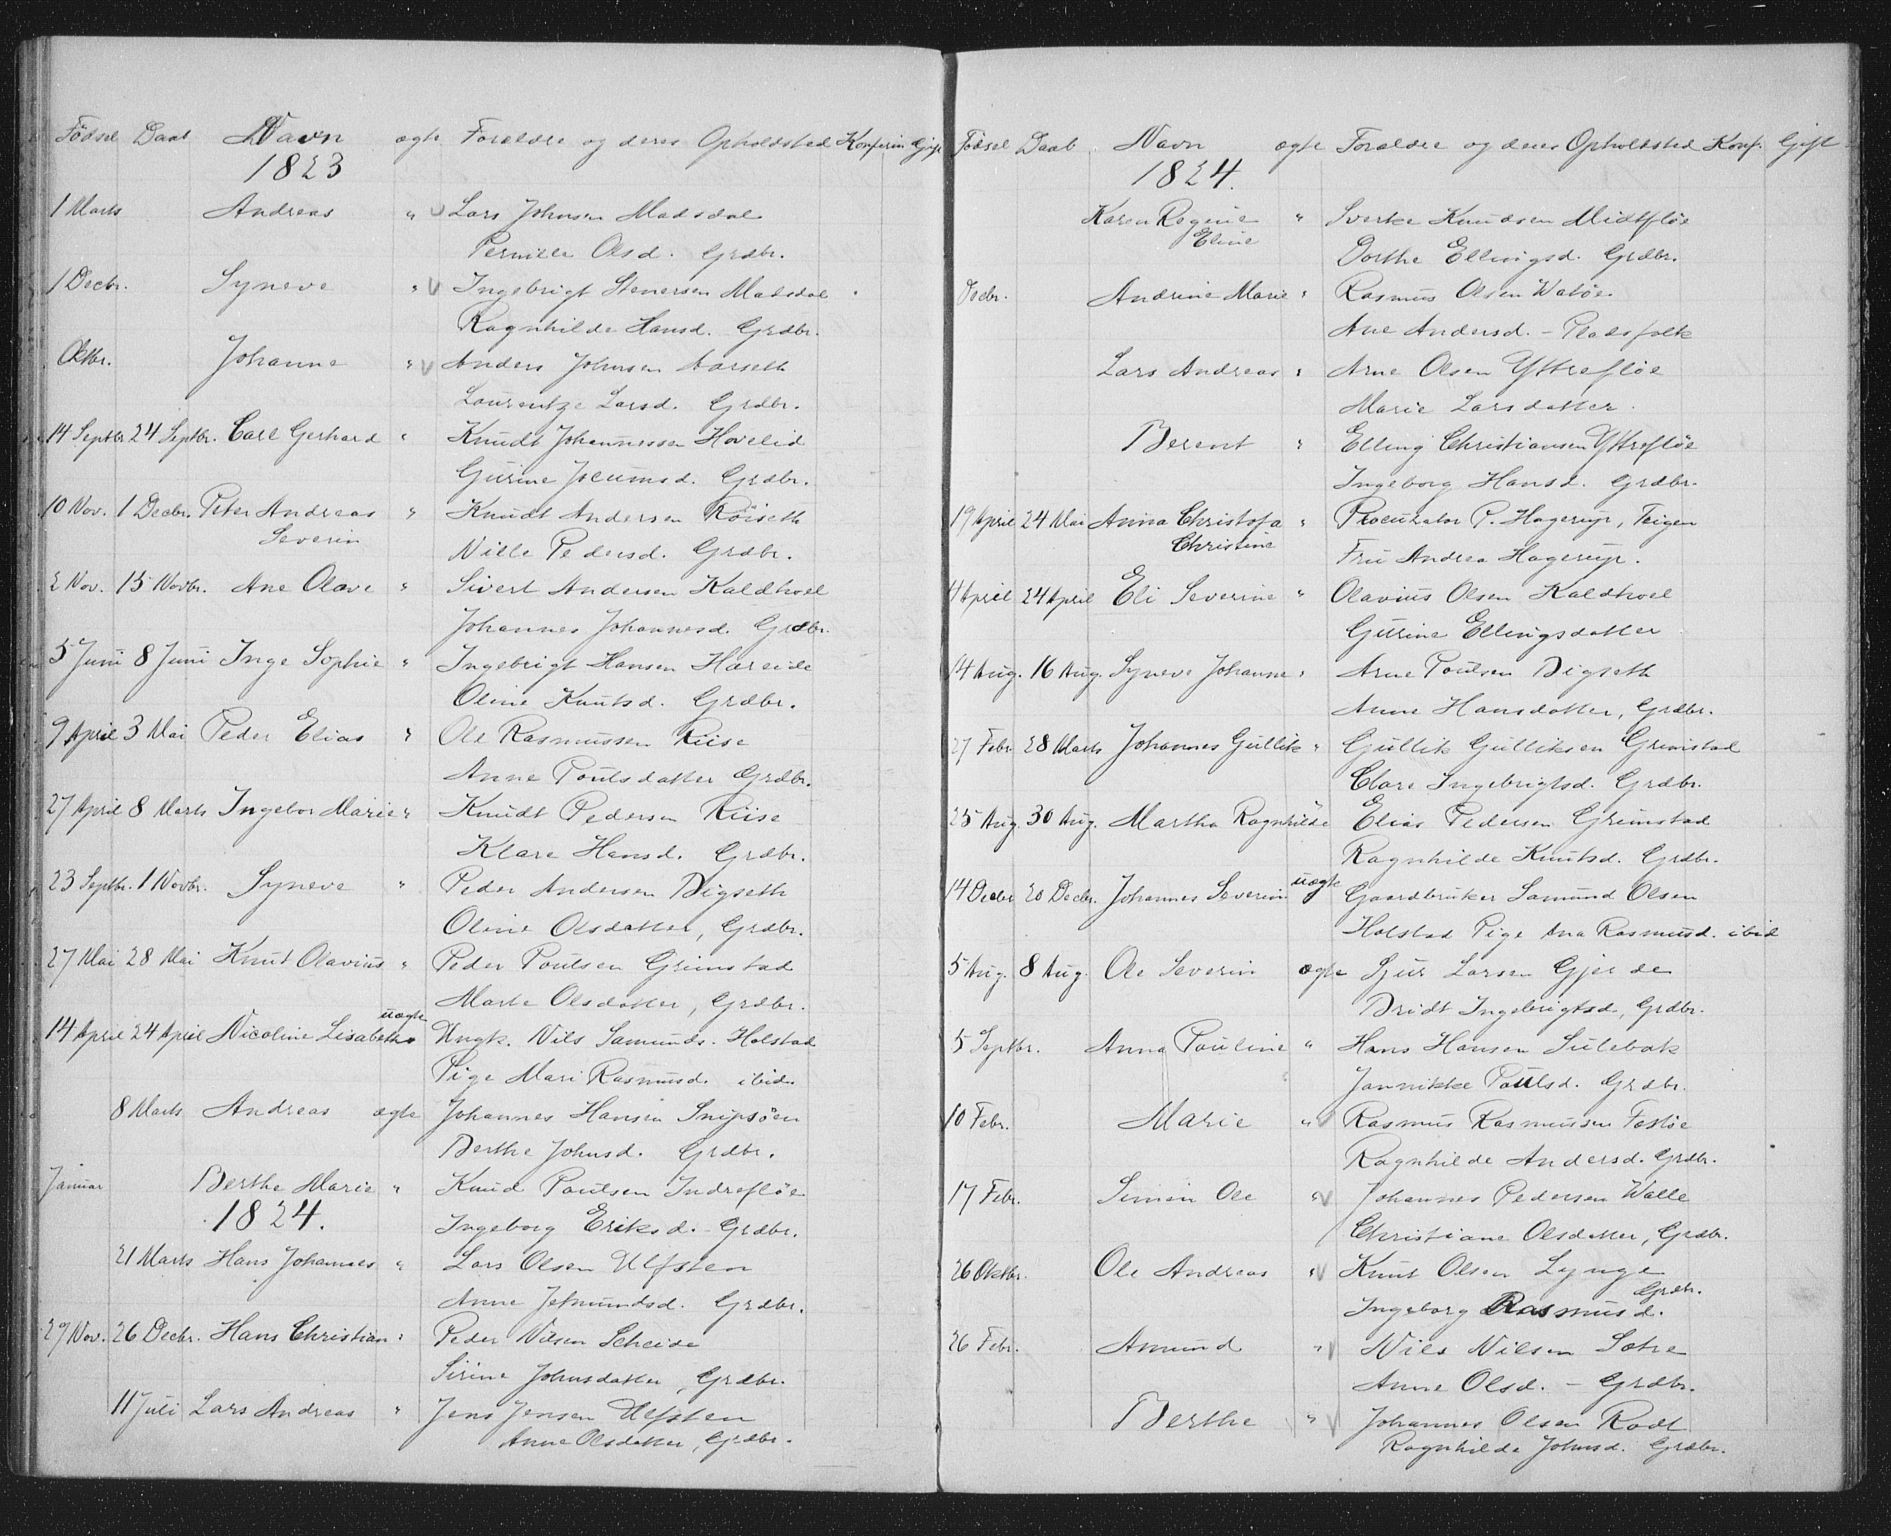 Födsel Daab Navn ægte Forældre og deres Opholdsted Konfirm Gift
1823
1 Marts Andreas " Lars Johnsen Madsdal
Pernille Olsd. Grdbr.
1 Decbr. Syneve " Ingebrigt Stenersen Matsdal
Ragnhilde Hansd. Grdbr.
Oktbr. Johanne " Anders Johnsen Aarseth
Laurentze Larsd. Grdbr.
14 Septbr. 24 Septbr. Carl Gerhard " Knudt Johannessen Hovelid
Gurine Jocumsd. Grdbr.
10 Nov. 1 Decbr. Peter Andreas " Knudt Andersen Röiseth
Severin
Nille Pedersd. Grdbr.
2 Nov. 15 Novbr. Ane Olave " Sivert Andersen Kaldhoel
Johannes Johannesd. Grdbr.
5 Juni 8 Juni Inge Sophie " Ingebrigt Hansen Hareide
Oline Knutsd. Grdbr.
9 April 3 Mai Peder Elias " Ole Rasmussen Riise
Anne Poulsdatter Grdbr.
27 April 8 Marts Ingebor Marie " Knudt Pedersen Riise
Klare Hansd. Grdbr.
23 Septbr. 1 Novbr. Syneve " Peder Andersen Digseth
Oline Olsdatter, Grdbr.
27 Mai 28 Mai Knut Olavius " Peder Poulsen Grimstad
Marte Olsdatter, Grdbr.
14 April 24 April Nicoline Lisabeth uægte Ungk. Nils Samunds. Holstad
Pige Mari Rasmusd. ibid.
8 Marts Andreas ægte Johannes Hansen Snipsöen
Berthe Johnsd. Grdbr.
Januar Berthe Marie " Knud Poulsen Indreflöe
1824. Ingeborg Eriksd. Grdbr.
21 Marts Hans Johannes " Lars Olsen Ulfsten
Anne Jetmundsd. Grdbr.
29 Nov. 26 Decbr. Hans Christian " Peder Nilsen Scheide
Sirine Johnsdatter, Grdbr.
11 Juli Lars Andreas " Jens Jensen Ulfsten
Anne Olsdatter, Grdbr.
Födsel Daab Navn ægte Forældre og deres Opholdsted Konf. Gift
1824.
Karen Regine " Sverke Knudsen Midtflöe
Eline
Dorthe Ellingsd. Grdbr.
Decbr. Andrine Marie " Rasmus Olsen Watöe
Ane Andersd. - Pladsfolk
Lars Andreas " Arne Olsen Yttreflöe
Marie Larsdatter.
Berent " Elling Christiansen Yttreflöe
Ingeborg Hansd. Grdbr.
19 April 24 Mai Anna Christofa " Procurator P. Hagerup, Teigen
Christine
Fru Andrea Hagerup.
4 April 24 April Eli Severine " Olavius Olsen Kaldhoel
Gurine Ellingsdatter
14 Aug. 16 Aug. Syneve Johanne " Arne Poulsen Digseth
Anne Hansdatter, Grdbr.
27 Febr. 28 Marts Johannes Gullik " Gullik Gulliksen Grimstad
Clare Ingebrigtsd. Grdbr.
25 Aug. 30 Aug. Martha Ragnhilde " Elias Pedersen Grimstad
Ragnhilde Knutsd. Grdbr.
14 Decbr. 20 Decbr. Johannes Severin uægte Gaardbruker Samund Olsen
Holstad Pige Ana Rasmusd. ibid
5 Aug. 8 Aug. Ole Severin ægte Sjur Larsen Gjerde
Bridt Ingebrigtsd, Grdbr.
5 Septbr. Anna Pouline " Hans Hansen Sulebak
Jannikke Poulsd. Grdbr.
10 Febr. Marie " Rasmus Rasmussen Fosöe
Ragnhilde Andersd. Grdbr.
17 Febr. Simon Ole " Johannes Pedersen Walle
Christiane Olsdatter, Grdbr.
26 Oktbr. Ole Andreas " Knut Olsen Lynge
Grdbr.
Ingeborg Rasmusd.
26 Febr. Amund " Nils Nilsen Sætre
Anne Olsd. - Grdbr.
Berthe " Johannes Olsen Rödt
Ragnhilde Johnsd. Grdbr.